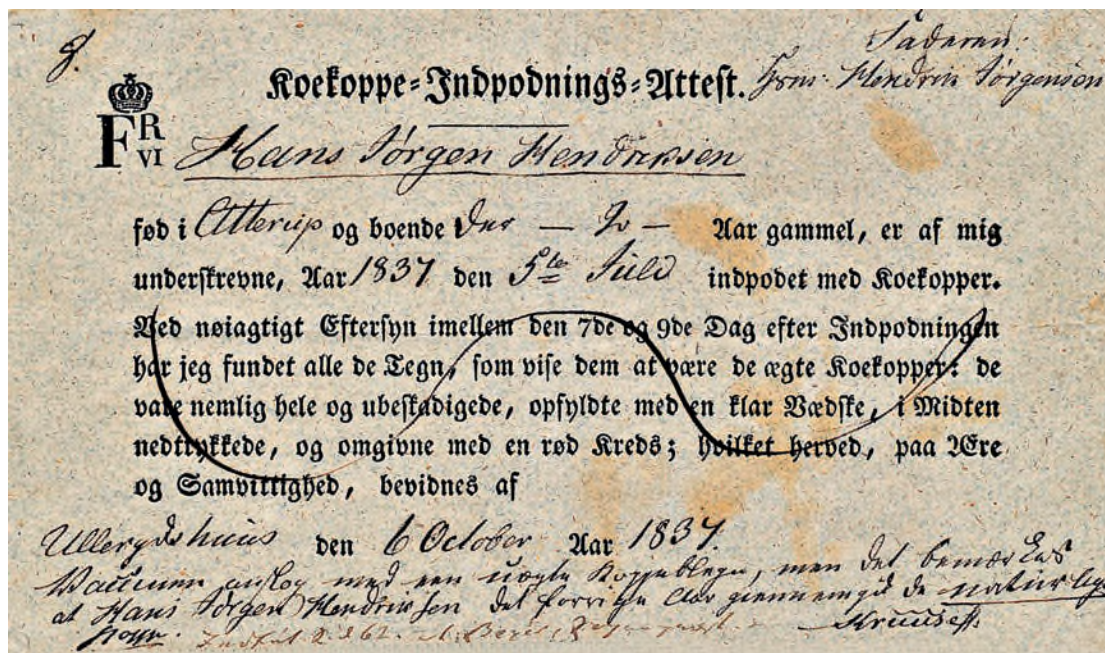 Faderen:
Koekoppe-Indpodnings-Attest. Hendrik Jørgensen
F R VI
Hans Jørgen Hendriksen
fød i Otterup og boende der — 2 — Aar gammel, er af mig
underskrevne, Aar 1837 den 5te Juli indpodet med Koekopper.
Ved nøiagtigt Eftersyn imellem den 7de og 9de Dag efter Indpodningen
har jeg fundet alle de Tegn, som vise dem at være de ægte Koekopper: de
vare nemlig hele og ubeskadigede, opfyldte med en klar Vædske, i Midten
nedtrykkede, og omgivne med en rød Kreds; hvilket herved, paa Ære
og Samvittighed, bevidnes af
den 6 October Aar 1837.
med een uægte men det bemærkes
at Hans Jørgen Hendriksen det forrige Aar giennemgik de naturlige